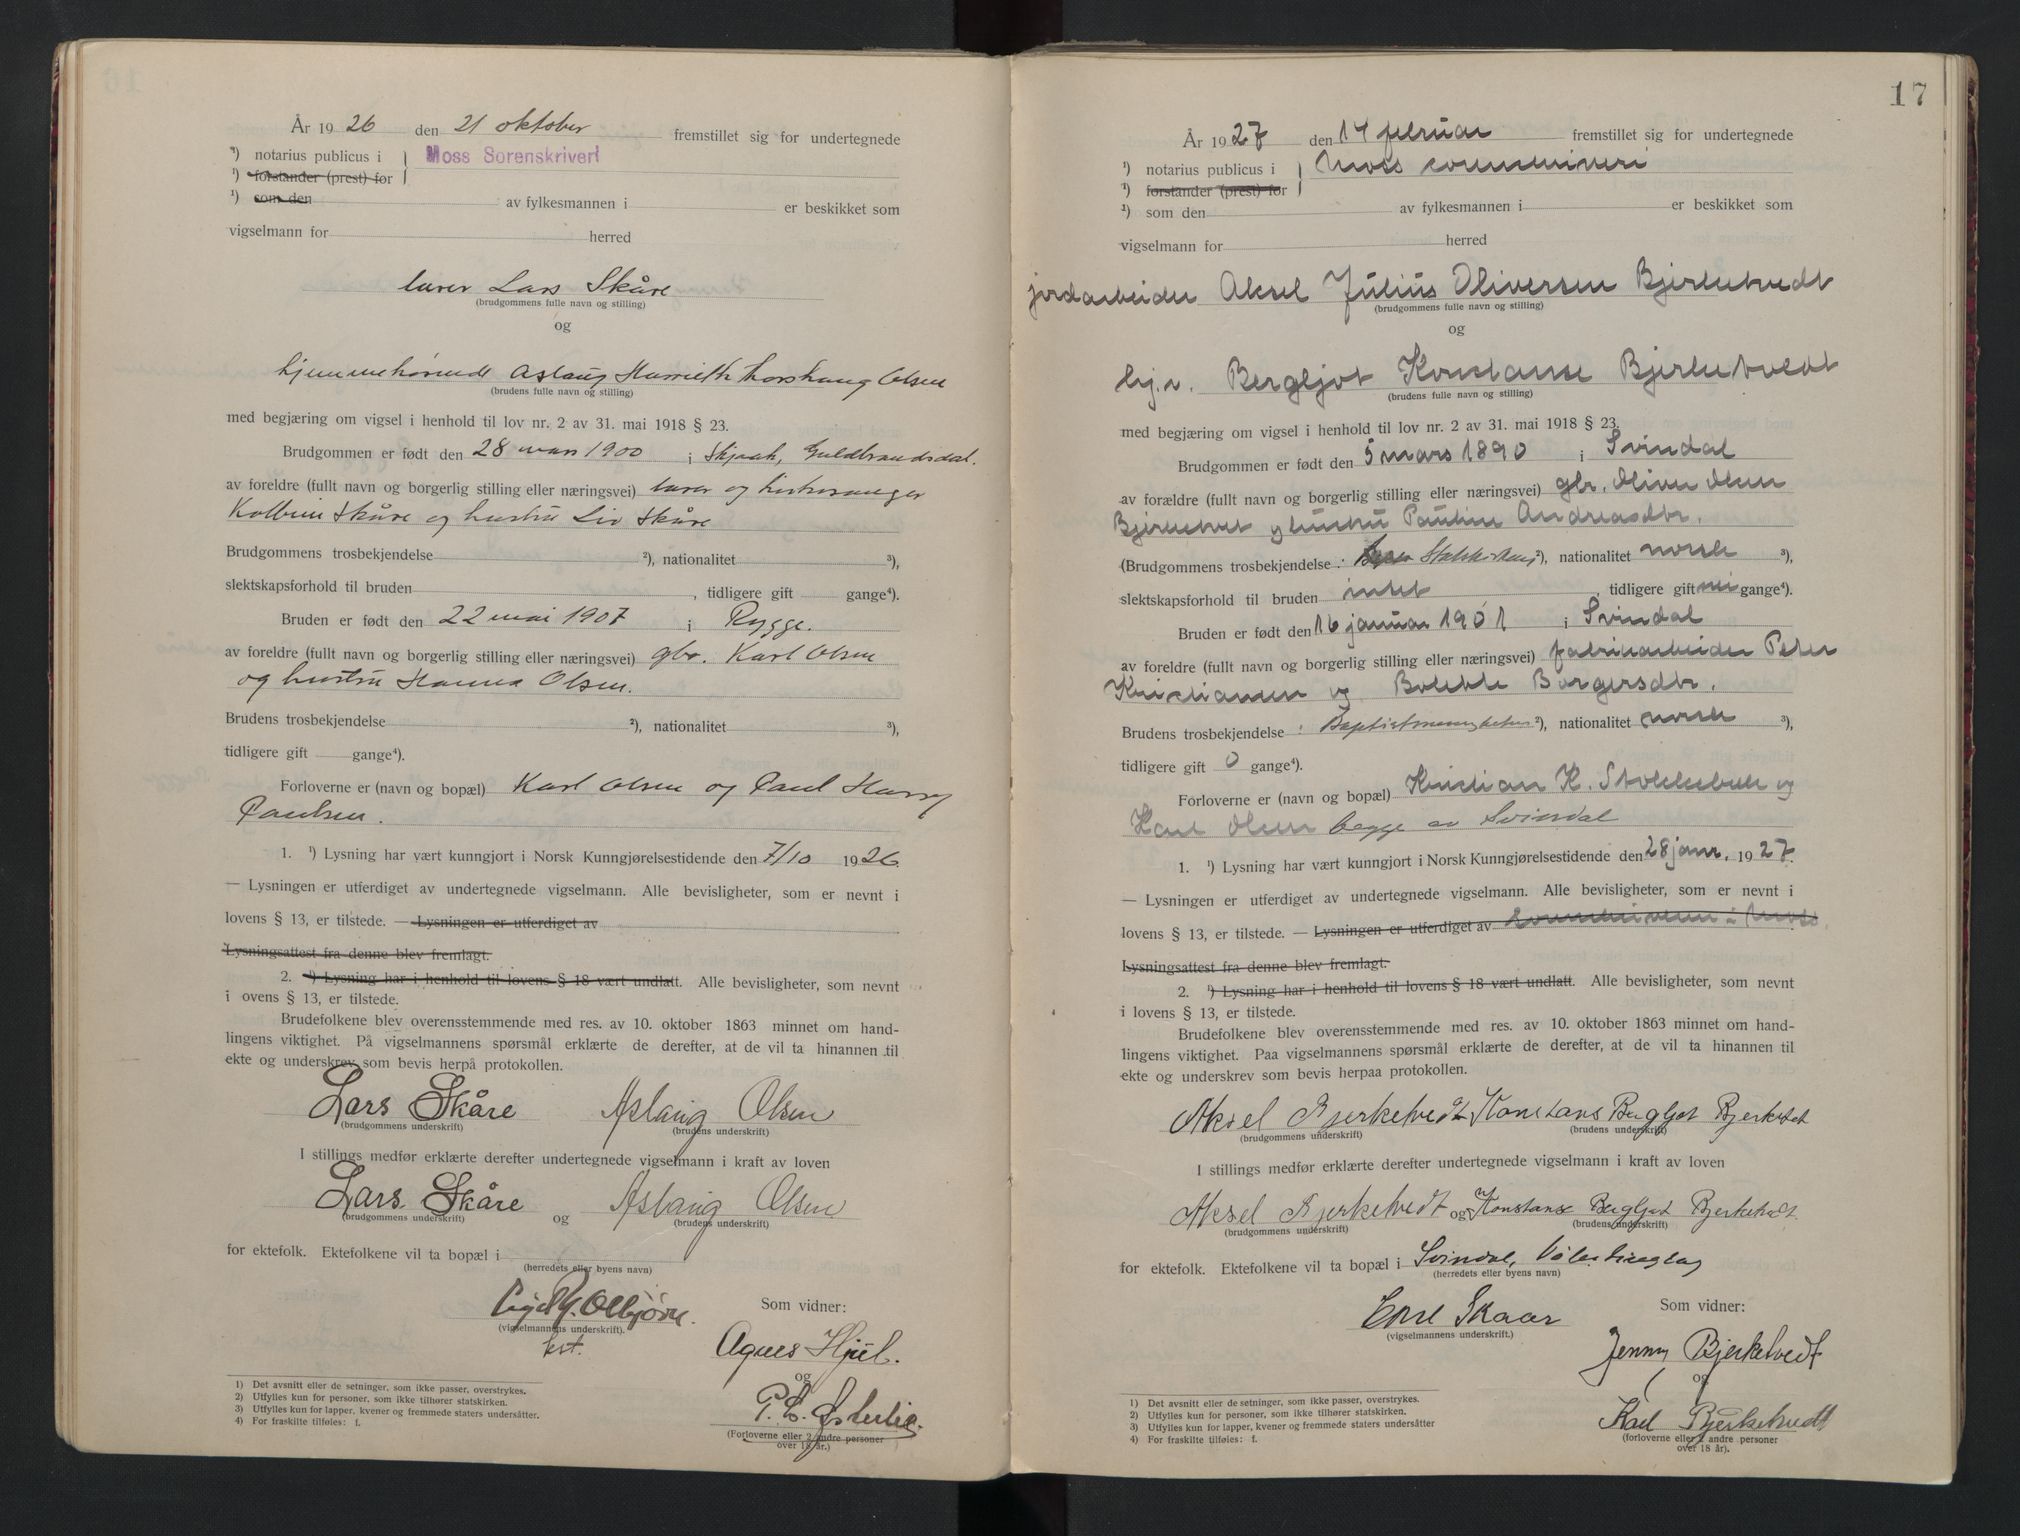 År 1926 den 21 oktober fremstillet sig for undertegnede
¹) notarius publicus i Moss Sorenskriveri
¹) forstander (prest) for
¹) som den av fylkesmannen i er beskikket som
vigselmann for herred
lærer Lars Skåre
(brudgommens fulle navn og stilling)
og
hjemmehørende Aslaug Harrieth Olsen
(brudens fulle navn og stilling)
med begjæring om vigsel i henhold til lov nr. 2 av 31. mai 1918 § 23.
Brudgommen er født den 28 mars 1900 i Skjaak, Guldbrandsdal.
av foreldre (fullt navn og borgerlig stilling eller næringsvei) lærer og kirkesanger
Kolbein Skåre og hustru Liv Skåre
Brudgommens trosbekjendelse ²), nationalitet ³),
slektskapsforhold til bruden , tidligere gift gange⁴).
Bruden er født den 22 mai 1907 i Rygge.
av foreldre (fullt navn og borgerlig stilling eller næringsvei) gbr. Karl Olsen
og hustru Hanna Olsen.
Brudens trosbekjendelse ²), nationalitet ³),
tidligere gift gange⁴).
Forloverne er (navn og bopæl) Karl Olsen og Paul Harry
Paulsen.
1. ¹) Lysning har vært kunngjort i Norsk Kunngjørelsestidende den 7/10 1926.
— Lysningen er utferdiget av undertegnede vigselmann. Alle bevisligheter, som er nevnt i
lovens § 13, er tilstede. — Lysningen er utferdiget av
Lysningsattest fra denne blev fremlagt.
2. ¹) Lysning har i henhold til lovens § 18 vært undlatt. Alle bevisligheter, som nevnt
i ovens § 13, er tilstede.
Brudefolkene blev overensstemmende med res. av 10. oktober 1863 minnet om hand-
lingens viktighet. På vigselmannens spørsmål erklærte de derefter, at de vil ta hinannen til
ekte og underskrev som bevis herpå protokollen.
Lars Skåre Aslaug Olsen
(brudgommens underskrift) (brudens underskrift)
I stillings medfør erklærte derefter undertegnede vigselmann i kraft av loven
Lars Skåre og Aslaug Olsen
(brudgommens underskrift) (brudens underskrift)
for ektefolk. Ektefolkene vil ta bopæl i
(herredets eller byens navn)
(vigselmannens underskrift).
Som vidner:
Agnes Hjel.
og
P. E. Østerlie.
(Forloverne eller 2 andre personer
over 18 år.)
1) Det avsnitt eller de setninger, som ikke passer, overstrykes.
2) Utfylles kun for personer, som ikke tilhører statskirken.
3) Utfylles kun for lapper, kvener og fremmede staters undersåtter.
4) For fraskilte tilføies: f.
17
År 1927 den 14 februar fremstillet sig for undertegnede
¹) notarius publicus i Moss sorenskriveri
¹) forstander (prest) for
¹) som den av fylkesmannen i er beskikket som
vigselmann for herred
jordarbeider Aksel Julius Oliversen Bjerketvedt
(brudgommens fulle navn og stilling)
og
hj.v. Bergljot Konstanse Bjerketvedt
(brudens fulle navn og stilling)
med begjæring om vigsel i henhold til lov nr. 2 av 31. mai 1918 § 23.
Brudgommen er født den 5 mars 1890 i Svindal
av forældre (fullt navn og borgerlig stilling eller næringsvei) gbr. Oliver Olsen
Bjerketvet og hustru Pauline Andreasdtr.
(Brudgommens trosbekjendelse : ²), nationalitet norsk ³),
slektskapsforhold til bruden intet , tidligere gift nei gange⁴).
Bruden er født den 16 januar 1901 i Svindal
av foreldre (fullt navn og borgerlig stilling eller næringsvei) fabrikarbeider Peter
Kristiansen og Bolette Borgersdtr.
Brudens trosbekjendelse : Baptistmenigheten ²), nationalitet norsk ³),
tidligere gift 0 gange⁴).
Forloverne er (navn og bopæl) Kristian K. Stokkebek og
Karl Olsen begge av Svindal
1. ¹) Lysning har vært kunngjort i Norsk Kunngjørelsestidende den 28 janr. 1927.
— Lysningen er utferdiget av undertegnede vigselmann. Alle bevisligheter, som er nevnt i
lovens § 13, er tilstede. — Lysningen er utferdiget av sorenskriveren i Moss.
Lysningsattest fra denne blev fremlagt.
2. ¹) Lysning har i henhold til lovens § 18 vært undlatt. Alle bevisligheter, som nevnt
i lovens § 13, er tilstede.
Brudefolkene blev overensstemmende med res. av 10. oktober 1863 minnet om hand-
lingens viktighet. Paa vigselmannens spørsmål erklærte de derefter, at de vil ta hinannen til
ekte og underskrev som bevis herpaa protokollen.
Aksel Bjerketvedt Konstans Bergljot Bjerketvet
(brudgommens underskrift) (brudens underskrift)
I stillings medfør erklærte derefter undertegnede vigselmann i kraft av loven
Aksel Bjerketvedt og Konstanse Bergljot Bjerketvedt.
(brudgommens underskrift) (brudens underskrift)
for ektefolk. Ektefolkene vil ta bopæl i Svindal, Våler
(herredets eller byens navn)
Skaar
(vigselmannens underskrift.)
Som vidner:
Jenny Bjerketvedt
og
Karl Bjerketvedt
(forloverne eller 2 andre personer
over 18 år).
1) Det avsnitt eller de setninger, som ikke passer, overstrykes.
2) Utfylles kun for personer, som ikke tilhører statskirken.
3) Utfylles kun for lapper, kvener og fremmede staters undersåtter
4) For fraskilte tilføies: f.